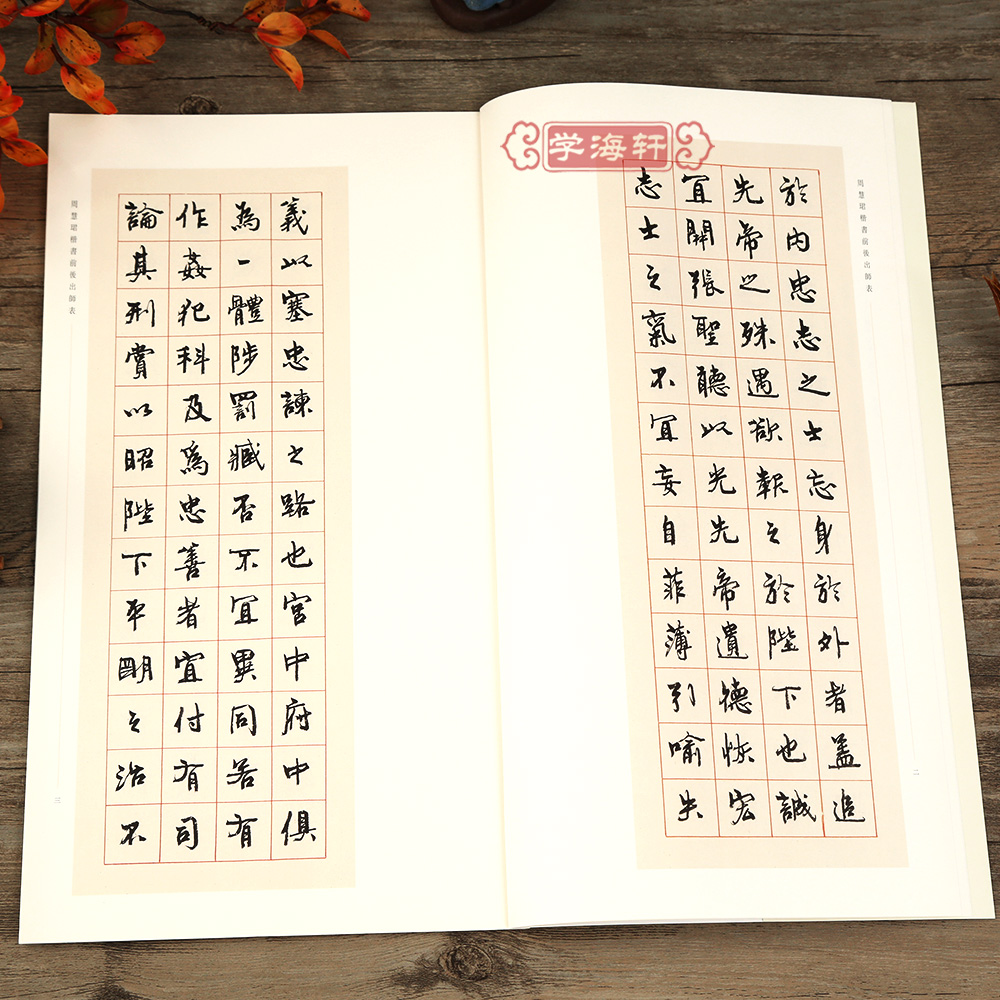 学海轩
周慧珺楷書前後出師表
於内忠志之士忘身於外者盖追
先帝之殊遇欲報之於陛下也誠
宜開張聖聽以光先帝遺德恢宏
志士之氣不宜妄自菲薄引喻失
二
義以塞忠諫之路也宮中府中俱
為一體陟罰臧否不宜異同若有
作姦犯科及爲忠善者宜付有司
論其刑賞以昭陛下平明之治不
周慧珺楷書前後出師表
三